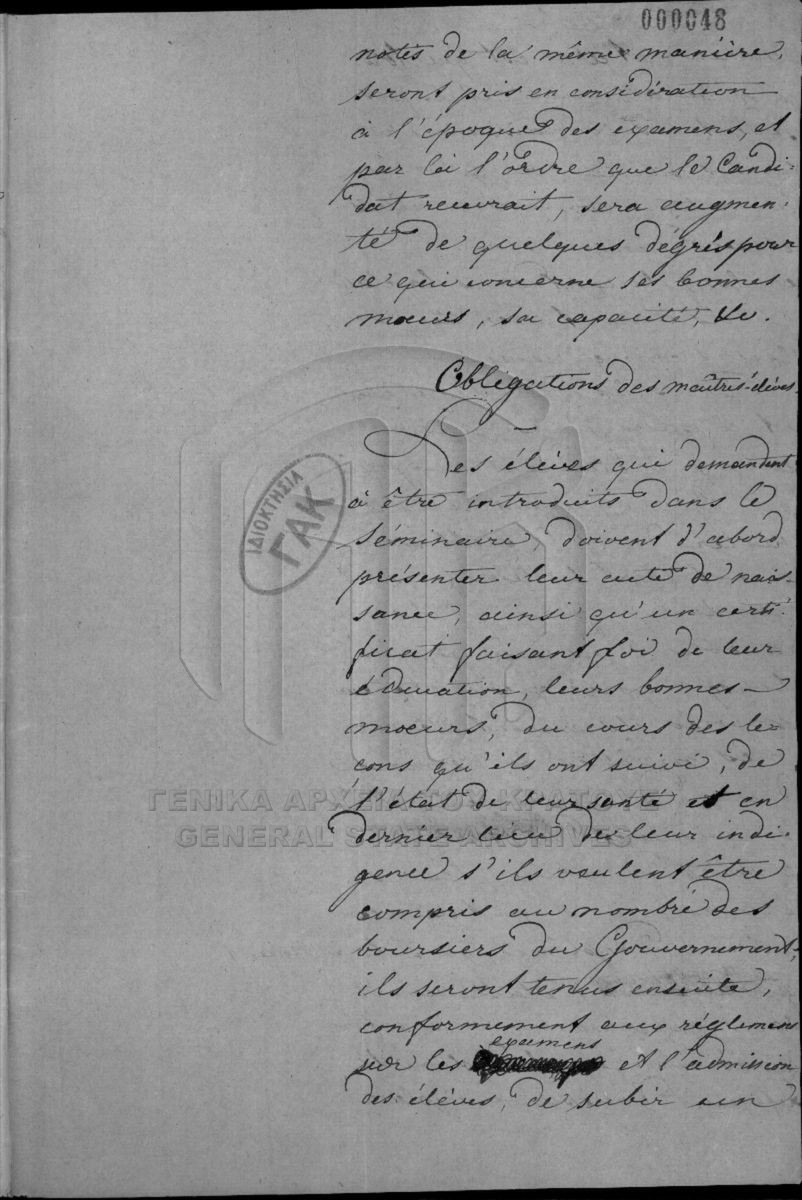 000048
notés de la même manière,
seront pris en considération
à l'époque des examens, et
par là l'ordre que le Candi-
dat recevrait, sera augmen-
té de quelques dégrés pour
ce qui concerne ses bonnes
moeurs, sa capacité, &c.
Obligations des maîtres-élèves.
Les élèves qui demandent
à être introduits dans le
séminaire, doivent d'abord
présenter leur acte de nais-
sance, ainsi qu'un certi-
ficat faisant foi de leur
éducation, leurs bonnes
moeurs, du cours des le-
cons qu'ils ont suivi, de
l'état de leur santé et en
dernier lieu de leur indi-
gence s'ils veulent être
compris au nombre des
boursiers du Gouvernement;
ils seront tenus ensuite,
conformement aux réglemens
examens
sur les et l'admission
des élèves, de subir un
ΙΔΙΟΚΤΗΣΙΑ
ΓΑΚ
ΓΕΝΙΚΑ ΑΡΧΕΙΑ ΤΟΥ ΚΡΑΤΟΥΣ
GENERAL STATE ARCHIVES